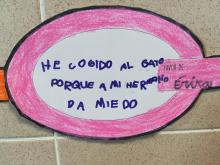 HE COGIDO AL GATO
PORQUE A MI HERMANO
DA MIEDO
Érika